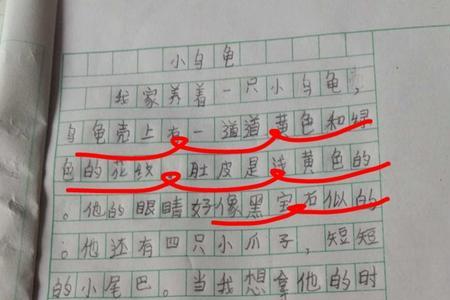 小乌龟
我家养着一只小乌龟,
乌龟壳上有一道道黄色和绿
色的花纹,肚皮是浅黄色的
。他的眼睛好像黑宝石似的
。他还有四只小爪子,短短
的小尾巴。当我想拿他的时